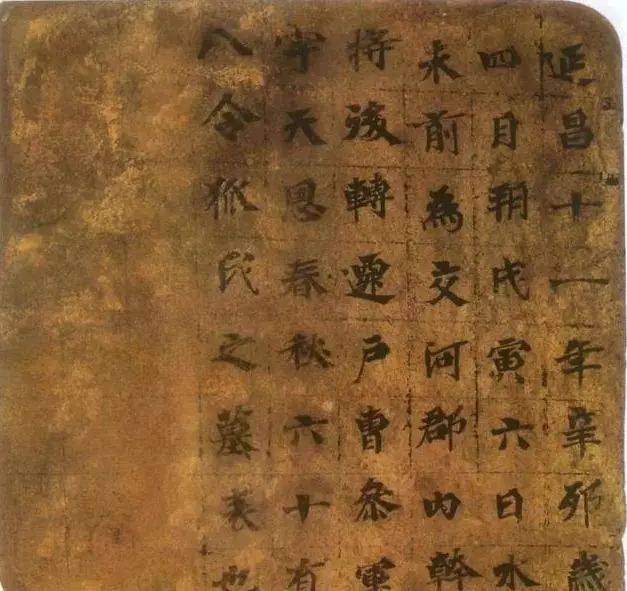 延昌十一年辛卯歲
四月朔戊寅六日水
未前為交河郡内幹
将後轉遷户曹叅軍
字天恩春秋六十有
八令狐氏之墓表也